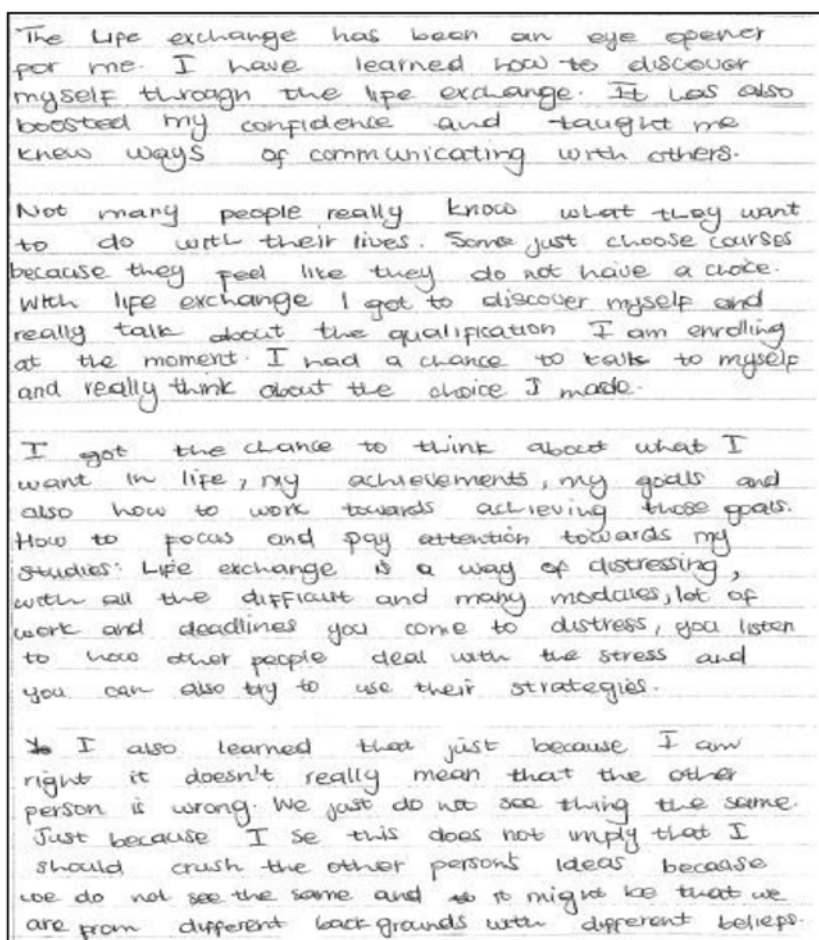 The Life exchange has been an eye opener
for me. I have learned how to discover
myself through the life exchange. It has also
boosted my confidence and taught me
knew ways of communicating with others.
Not many people really know what they want
to do with their lives. Some just choose courses
because they feel like they do not have a choice.
With life exchange I got to discover myself and
really talk about the qualification I am enrolling
at the moment. I had a chance to talk to myself
and really think about the choice I made.
I got the chance to think about what I
want in life, my achievements, my goals and
also how to work towards achieving those goals.
How to focus and pay attention towards my
studies. Life exchange is a way of distressing,
with all the difficult and many modules, lot of
work and deadlines you come to distress, you listen
to how other people deal with the stress and
you can also try to use their strategies.
I also learned that just because I am
right it doesn't really mean that the other
person is wrong. We just do not see thing the same.
Just because I se this does not imply that I
should crush the other person's ideas because
we do not see the same and it might be that we
are from different backgrounds with different beliefs.